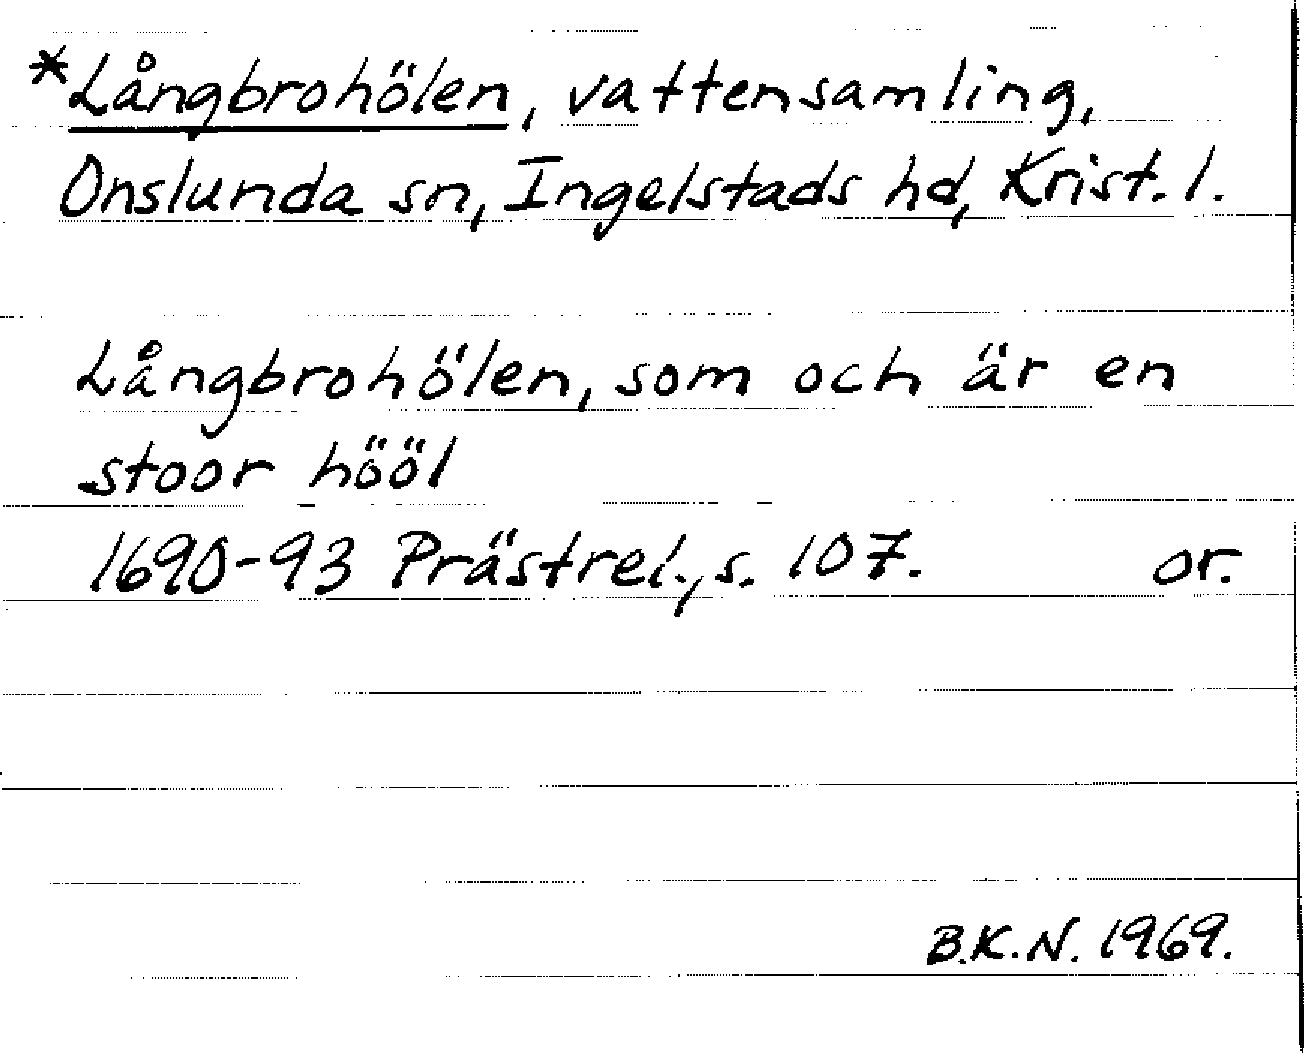 *Långbrohölen, vattensamling,
Onslunda sn, Ingelstads hd, Krist. l.
Långbrohölen, som och är en
stoor hööl
1690-93 Prästrel., s. 107. or.
B.K.N. 1969.